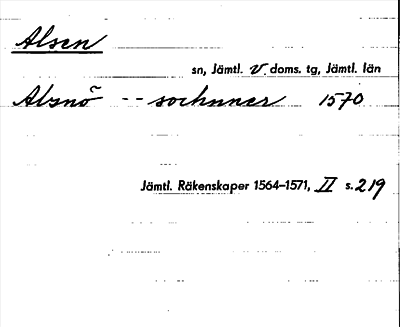 Alsen
sn, Jämtl. V. doms. tg, Jämtl. län
Alsnö -- sochnner 1570
Jämtl. Räkenskaper 1564–1571, II s. 219